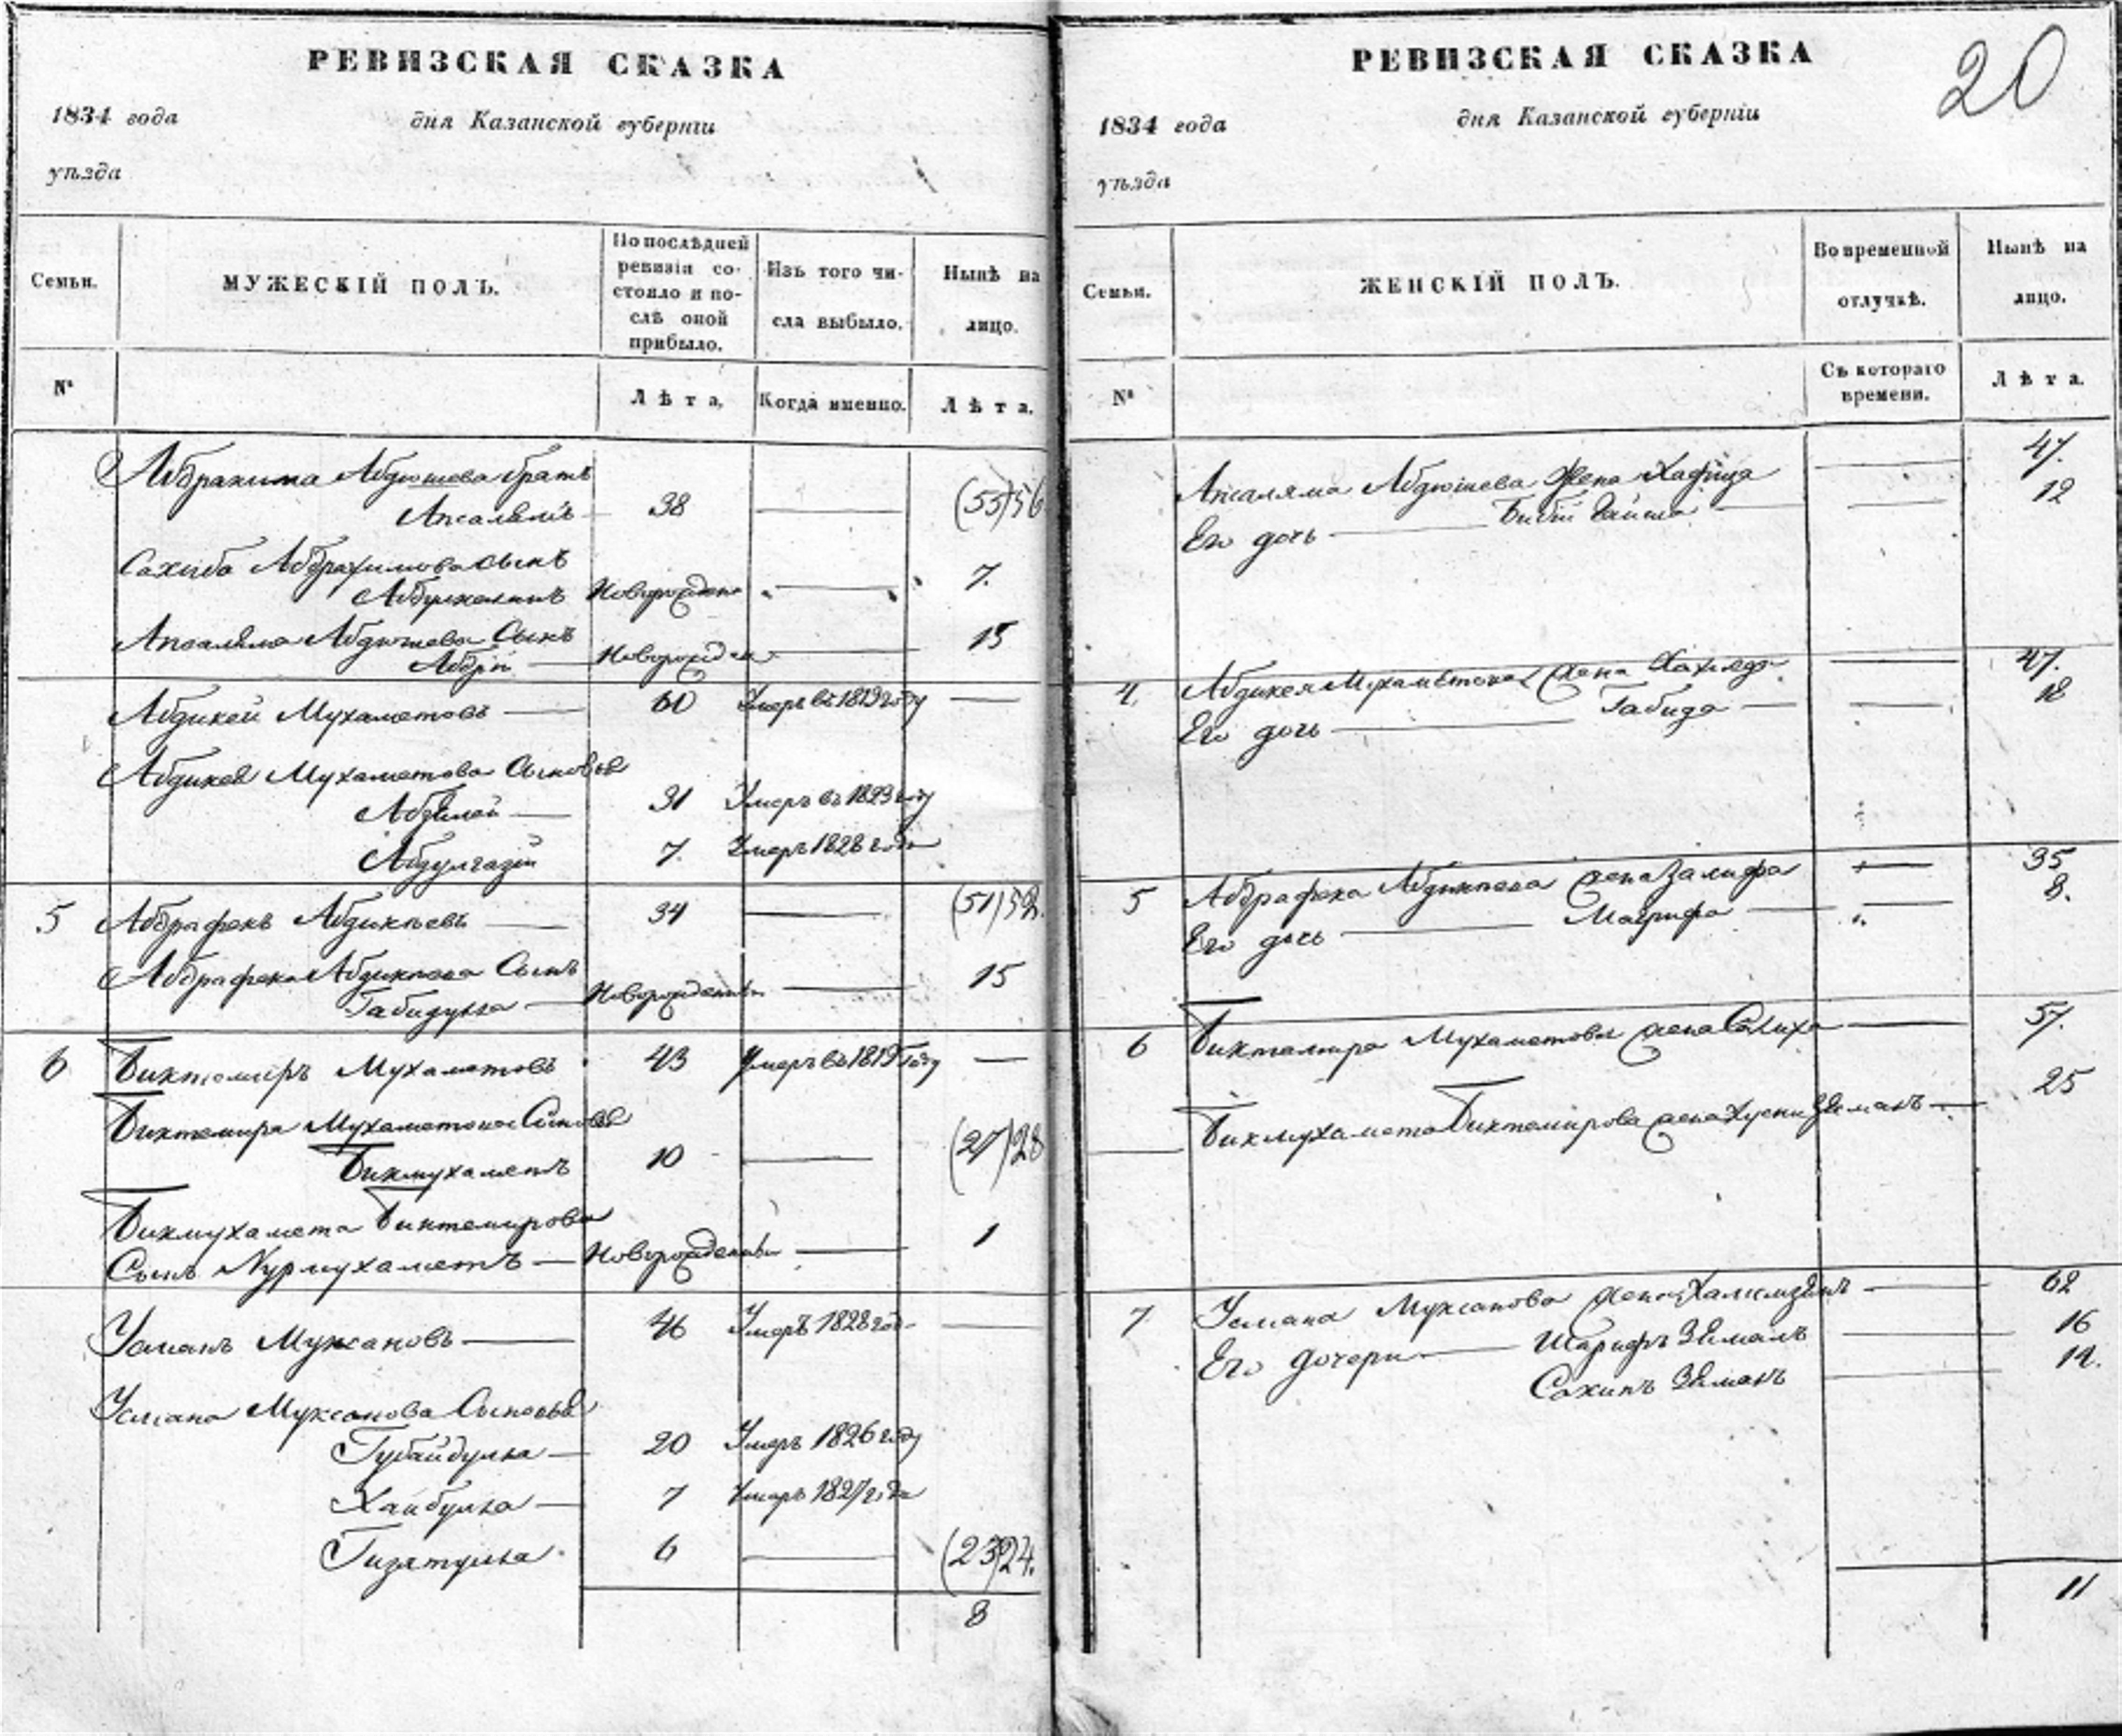 РЕВИЗСКАЯ СКАЗКА
1834 года дня Казанской губернiи
уѣзда
Семьи. МУЖЕСКIЙ ПОЛЪ. По послѣдней ревизiи состояло и послѣ оной прибыло. Изъ того числа выбыло. Нынѣ на лицо.
№ Лѣта, Когда именно. Лѣта.
Абдрахима Абдюшева братъ
Апсалямъ 38 (55)56
Сахиба Абдрахимова сынъ
Новорожден 7.
Апсаляма Абдюшева Сынъ
Новорожден 15
Абдикей Мухаметовъ 60 Умеръ въ 1819 году
Абдикея Мухаметова Сыновья
31 Умеръ въ 1823 году
Абдулгазiй 7. Умеръ 1828 года
5 Абдрафекъ Абдикѣевъ 34 (51)52.
Абдрафека Абдикѣева Сынъ
Габидулла Новорожденный 15
6 Биктемиръ Мухаметовъ 43 Умеръ въ 1819 году
Биктемира Мухаметова Сыновья
Бикмухаметъ 10 (27)28
Бикмухамета Биктемирова
Сынъ Нурмухаметъ Новорожденный 1
Усманъ Муксановъ 46 Умеръ 1828 год
Усмана Муксанова Сыновья
Губайдулла 20 Умеръ 1826 году
Хайбулла 7 Умеръ 1827 года
Гизятулла 6 (23)24.
8
РЕВИЗСКАЯ СКАЗКА 20
1834 года дня Казанской губернiи
уѣзда
Семьи. ЖЕНСКIЙ ПОЛЪ. Во временной отлучкѣ. Нынѣ на лицо.
№ Съ котораго времени. Лѣта.
Апсаляма Абдюшева Жена Хафиза 47.
Его дочь Биби 12
4. Абдикея Мухаметова жена 47.
Его дочь Габида 18
5 Абдрафека Абдикѣева жена Залифа 35
Его дочь Магрифа 8.
6 Биктемира Мухаметова жена Салиха 57.
Бикмухамета Биктемирова жена Хусни Зяманъ 25
7 Усмана Муксанова жена 62
Его дочери Шарифъ Зяманъ 16
Сахипъ Зяманъ 12.
11